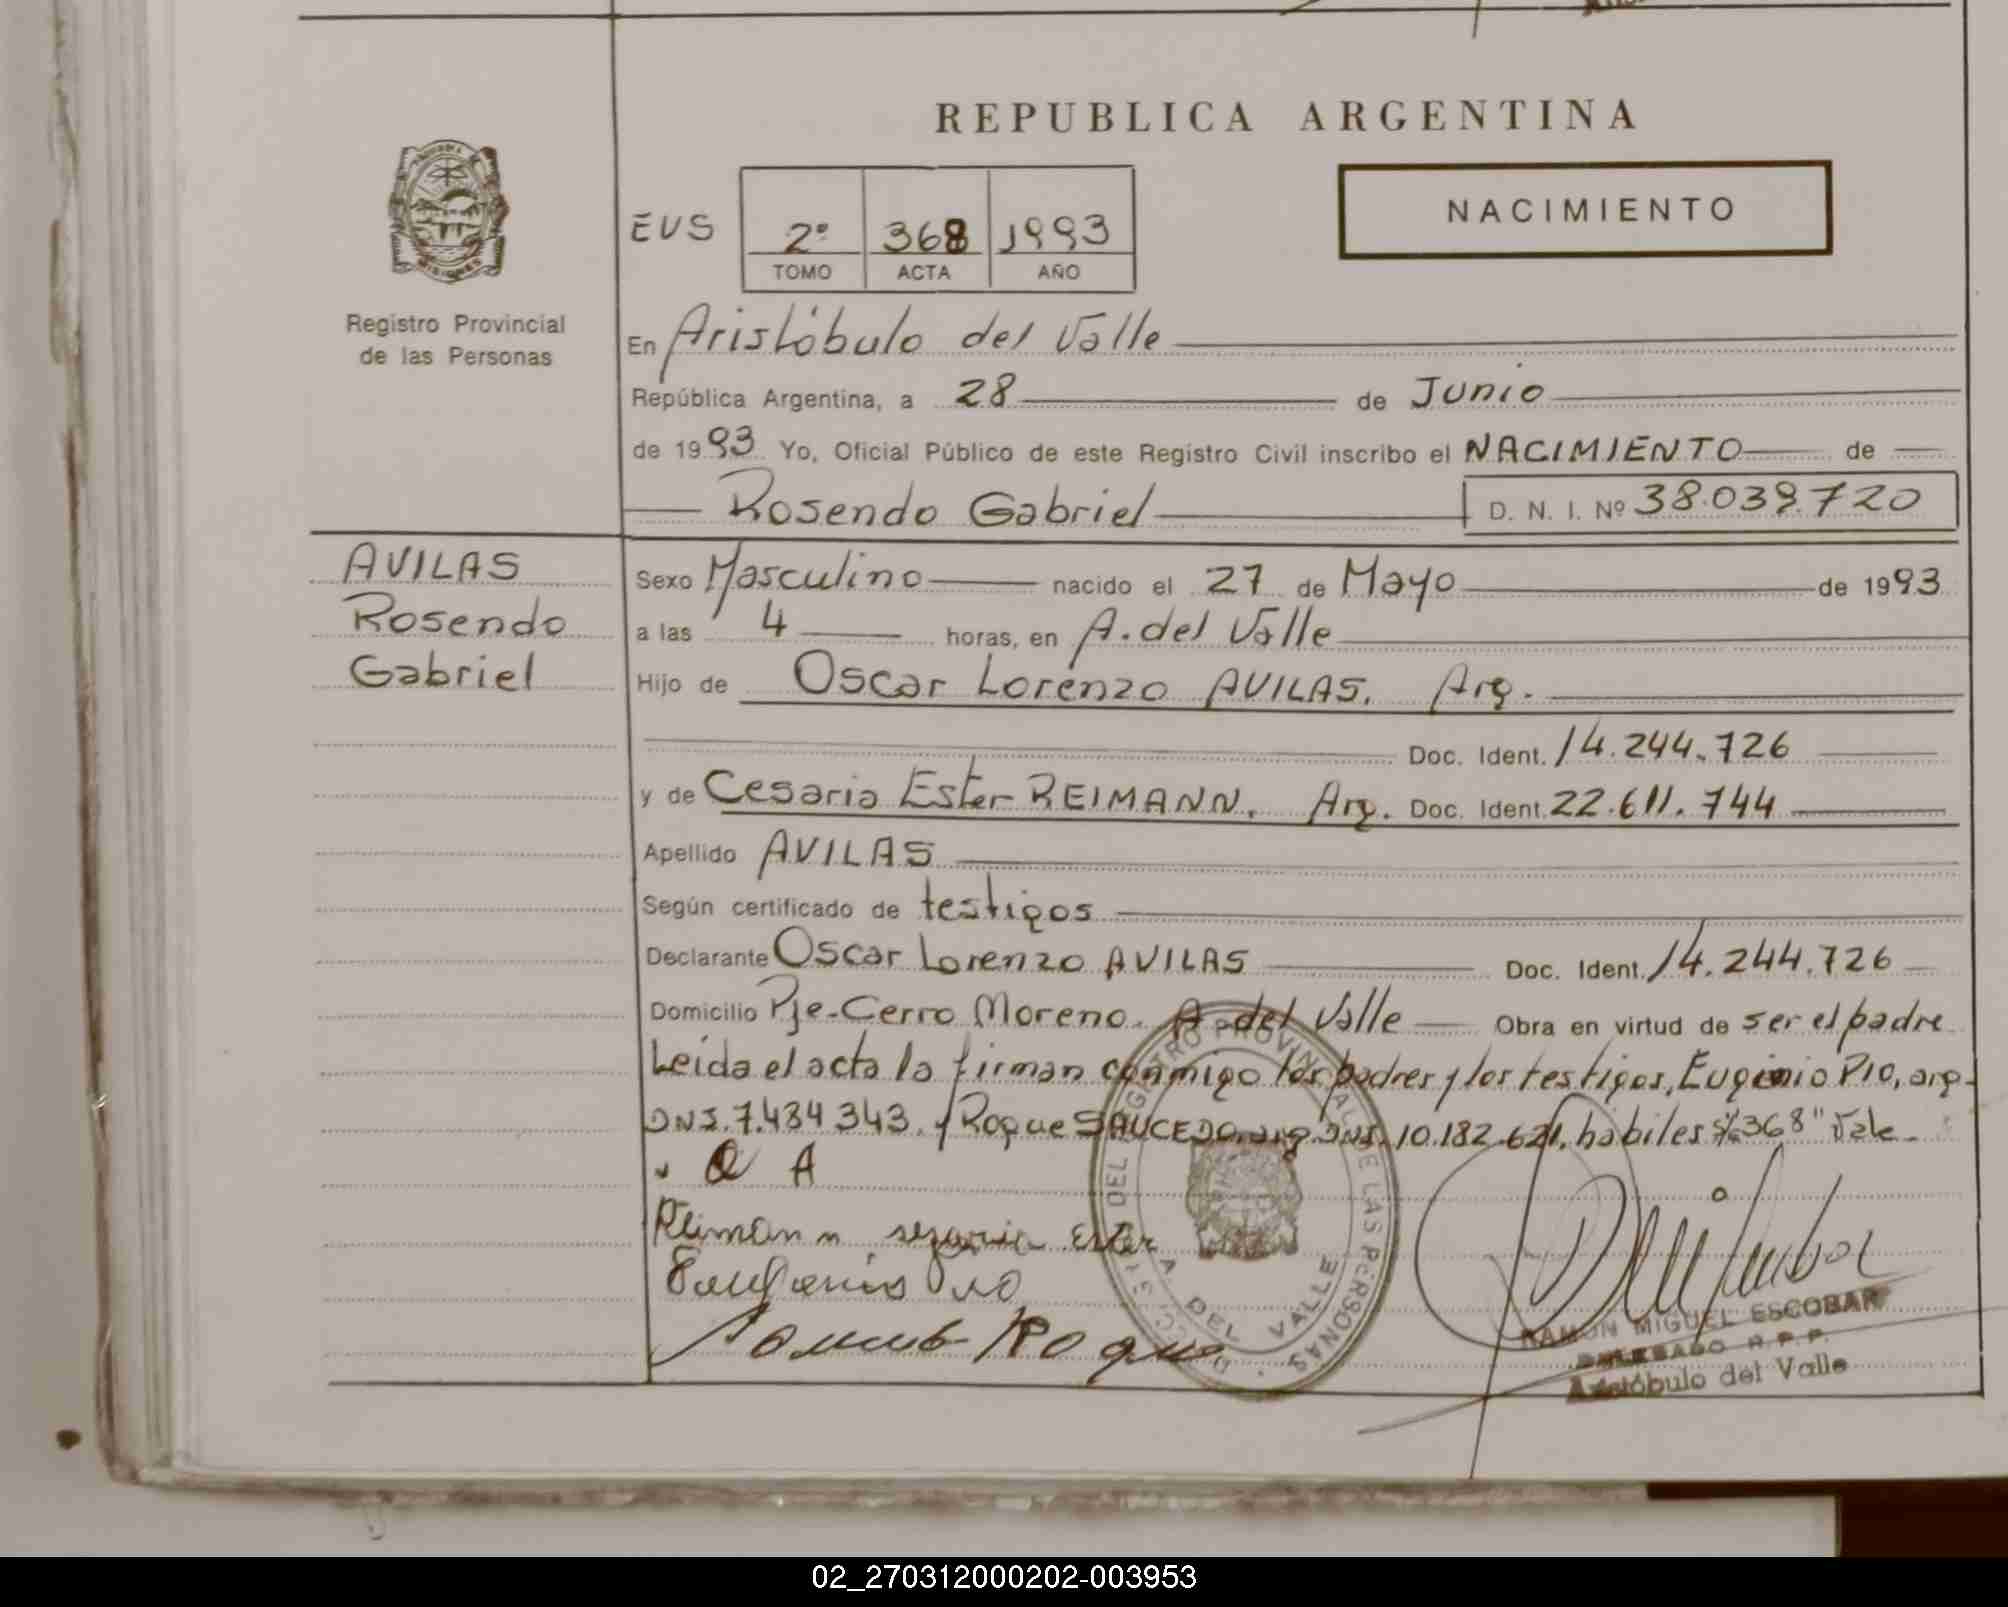 REPUBLICA ARGENTINA
NACIMIENTO
EVS
2º 368 1993
TOMO ACTA AÑO
MISIONES
Registro Provincial
de las Personas
En Aristóbulo del Valle
República Argentina, a 28 de Junio
de 1993 Yo, Oficial Público de este Registro Civil inscribo el NACIMIENTO de
Rosendo Gabriel D. N. I. Nº 38.039.720
AVILAS
Rosendo
Gabriel
Sexo Masculino nacido el 27 de Mayo de 1993
a las 4 horas, en A. del Valle
Hijo de Oscar Lorenzo AVILAS. Arg.
Doc. Ident. 14.244.726
y de Cesaria Ester REIMANN. Arg. Doc. Ident. 22.611.744
Apellido AVILAS
Según certificado de testigos
Declarante Oscar Lorenzo AVILAS Doc. Ident. 14.244.726
Domicilio Pje-Cerro Moreno. A del Valle Obra en virtud de ser el padre
Leída el acta la firman conmigo los padres y los testigos, Eugenio PIO, arg.
DNI. 7.434 343. y Roque SAUCEDO. arg. DNI. 10.182.621. habiles 368" Vale.
O A
Reimann Ester
Roque
DEL REGISTRO PROVINCIAL DE LAS PERSONAS
A. DEL VALLE
RAMON MIGUEL ESCOBAR
DELEGADO R.P.P.
Aristóbulo del Valle
02_270312000202-003953